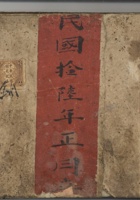 民國拾陸年正月